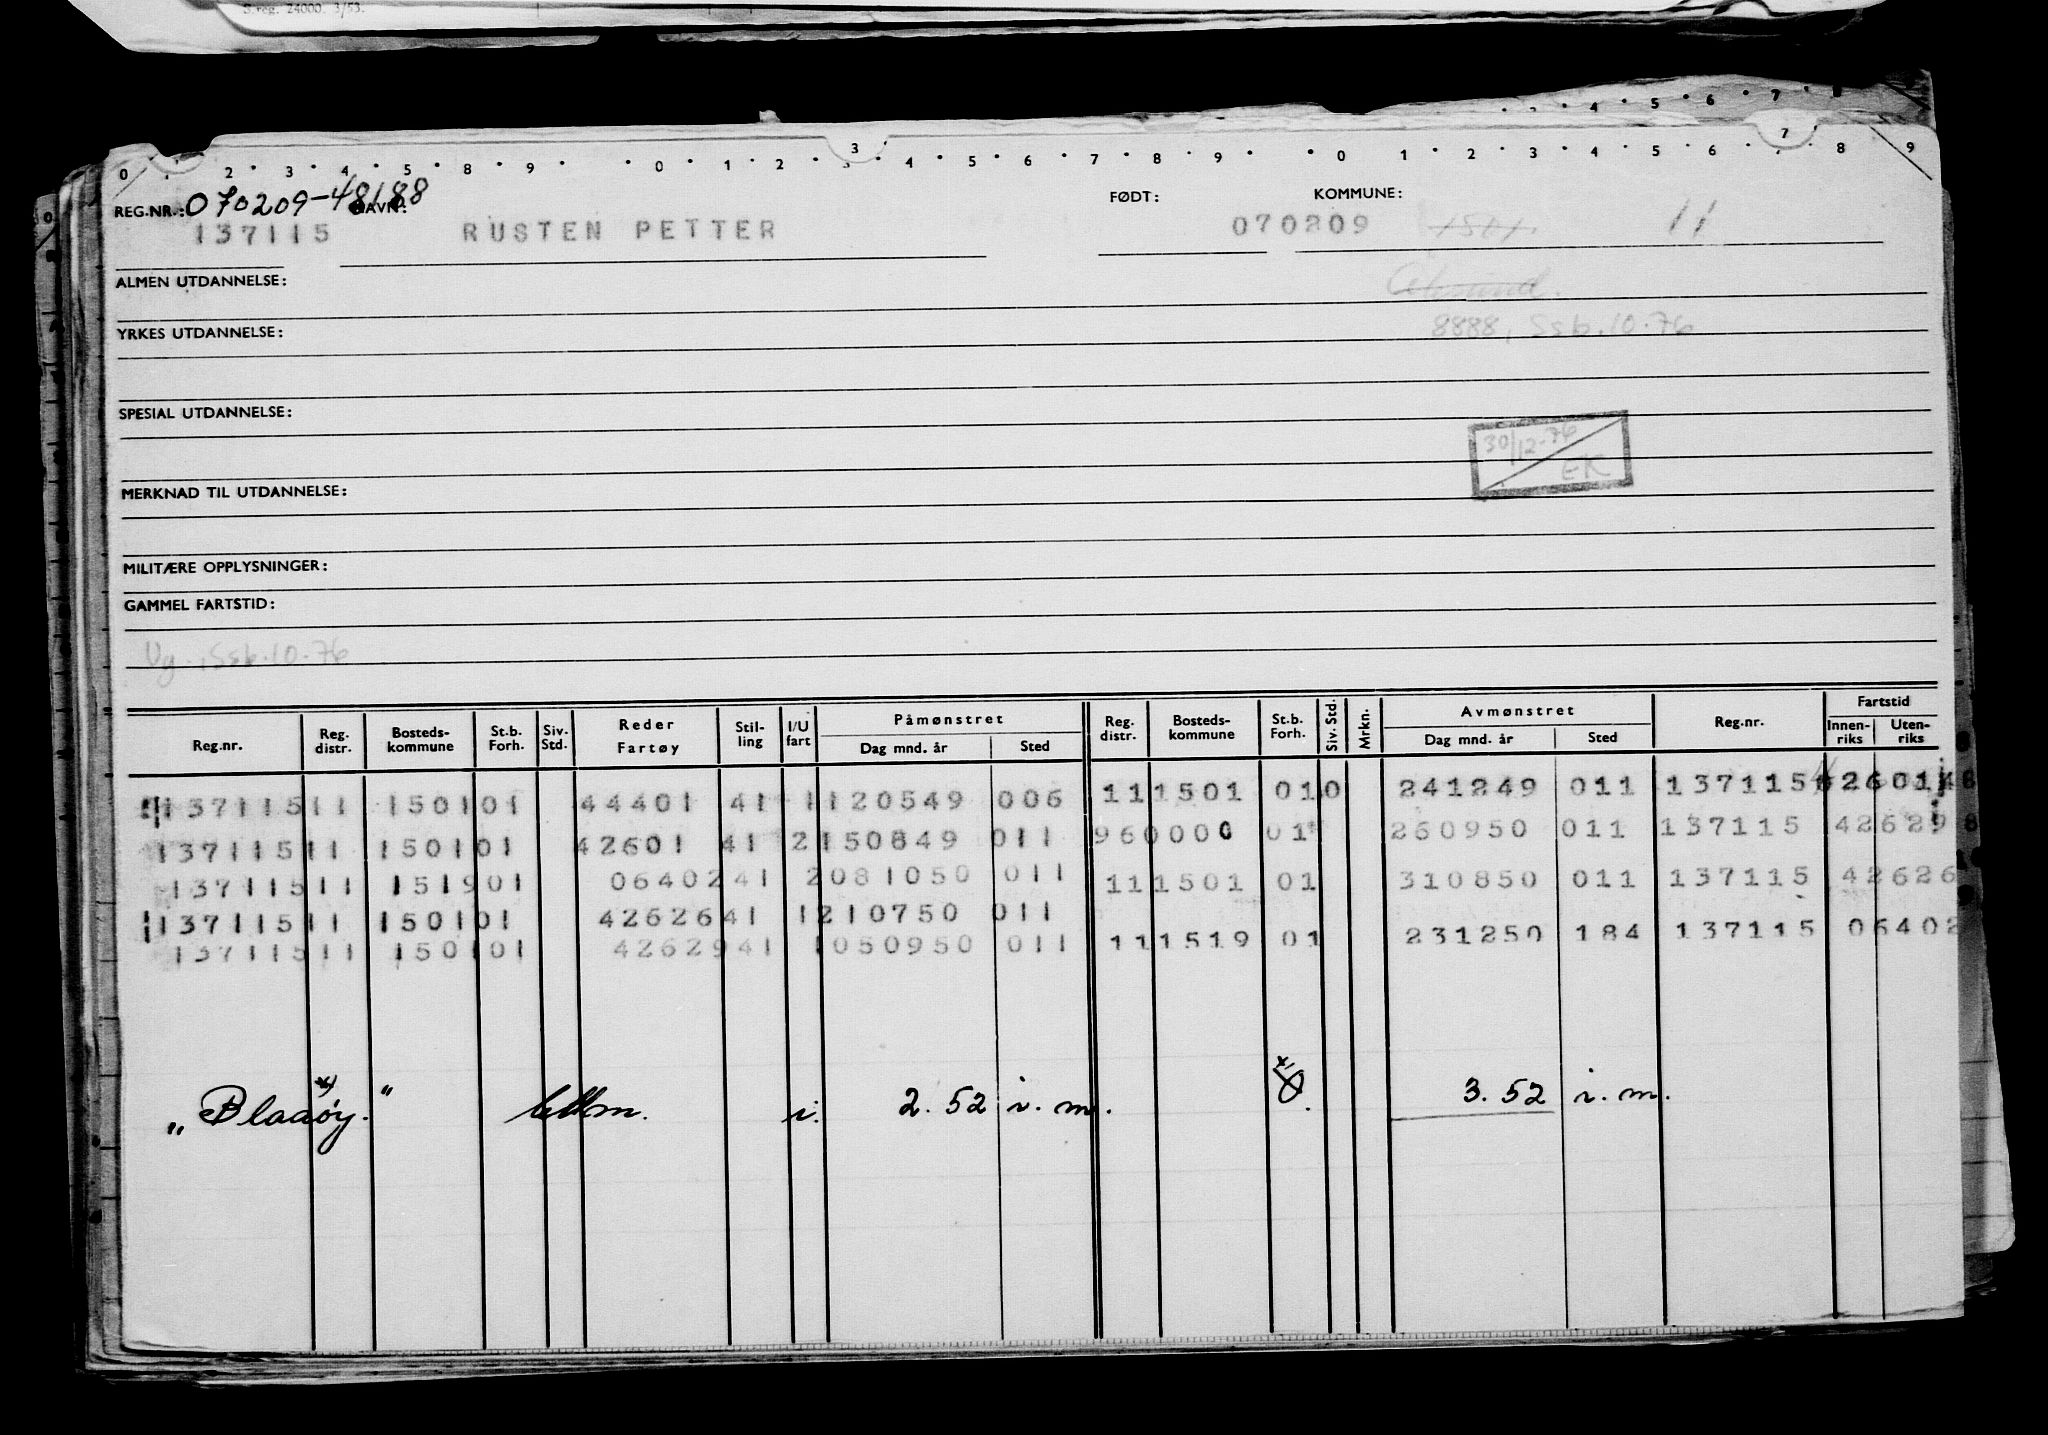 S.reg. 24000. 3/53.
4 5 6 7 8
0 1 2 3 4 5 6 7 8 9 0 1 2 3 4 5 6 7 8 9 0 1 2 3 4 5 6 7 8 9
REG.NR.: 070209-48188 NAVN: FØDT: KOMMUNE:
137115 RUSTEN PETTER 070209 1501. 11
ALMEN UTDANNELSE: Ålesund.
YRKES UTDANNELSE: 8888, Ssb.10.76
SPESIAL UTDANNELSE:
30/12-76 EK
MERKNAD TIL UTDANNELSE:
MILITÆRE OPPLYSNINGER:
GAMMEL FARTSTID:
Ug. i Ssb.10.76
Reg.nr. Reg. distr. Bosteds-kommune St.b. Forh. Siv. Std. Reder Fartøy Stil-ling I/U fart Påmønstret Dag mnd. år Sted Reg. distr. Bosteds-kommune St.b. Forh. Siv. Std. Mrkn. Avmønstret Dag mnd. år Sted Reg.nr. Fartstid Innen-riks Uten-riks
137115 11 1501 01 44401 41 1 120549 006 11 1501 01 0 241249 011 137115
137115 11 1501 01 42601 41 2 150849 011 96 0000 01 260950 011 137115 42629
137115 11 1519 01 06402 41 2 081050 011 11 1501 01 310850 011 137115 42626
137115 11 1501 01 42626 41 1 210750 011
137115 11 1501 01 42629 41 1 050950 011 11 1519 01 231250 184 137115 06402
„Blaaøy.“ i. 2.52 i. m. 3.52 i. m.